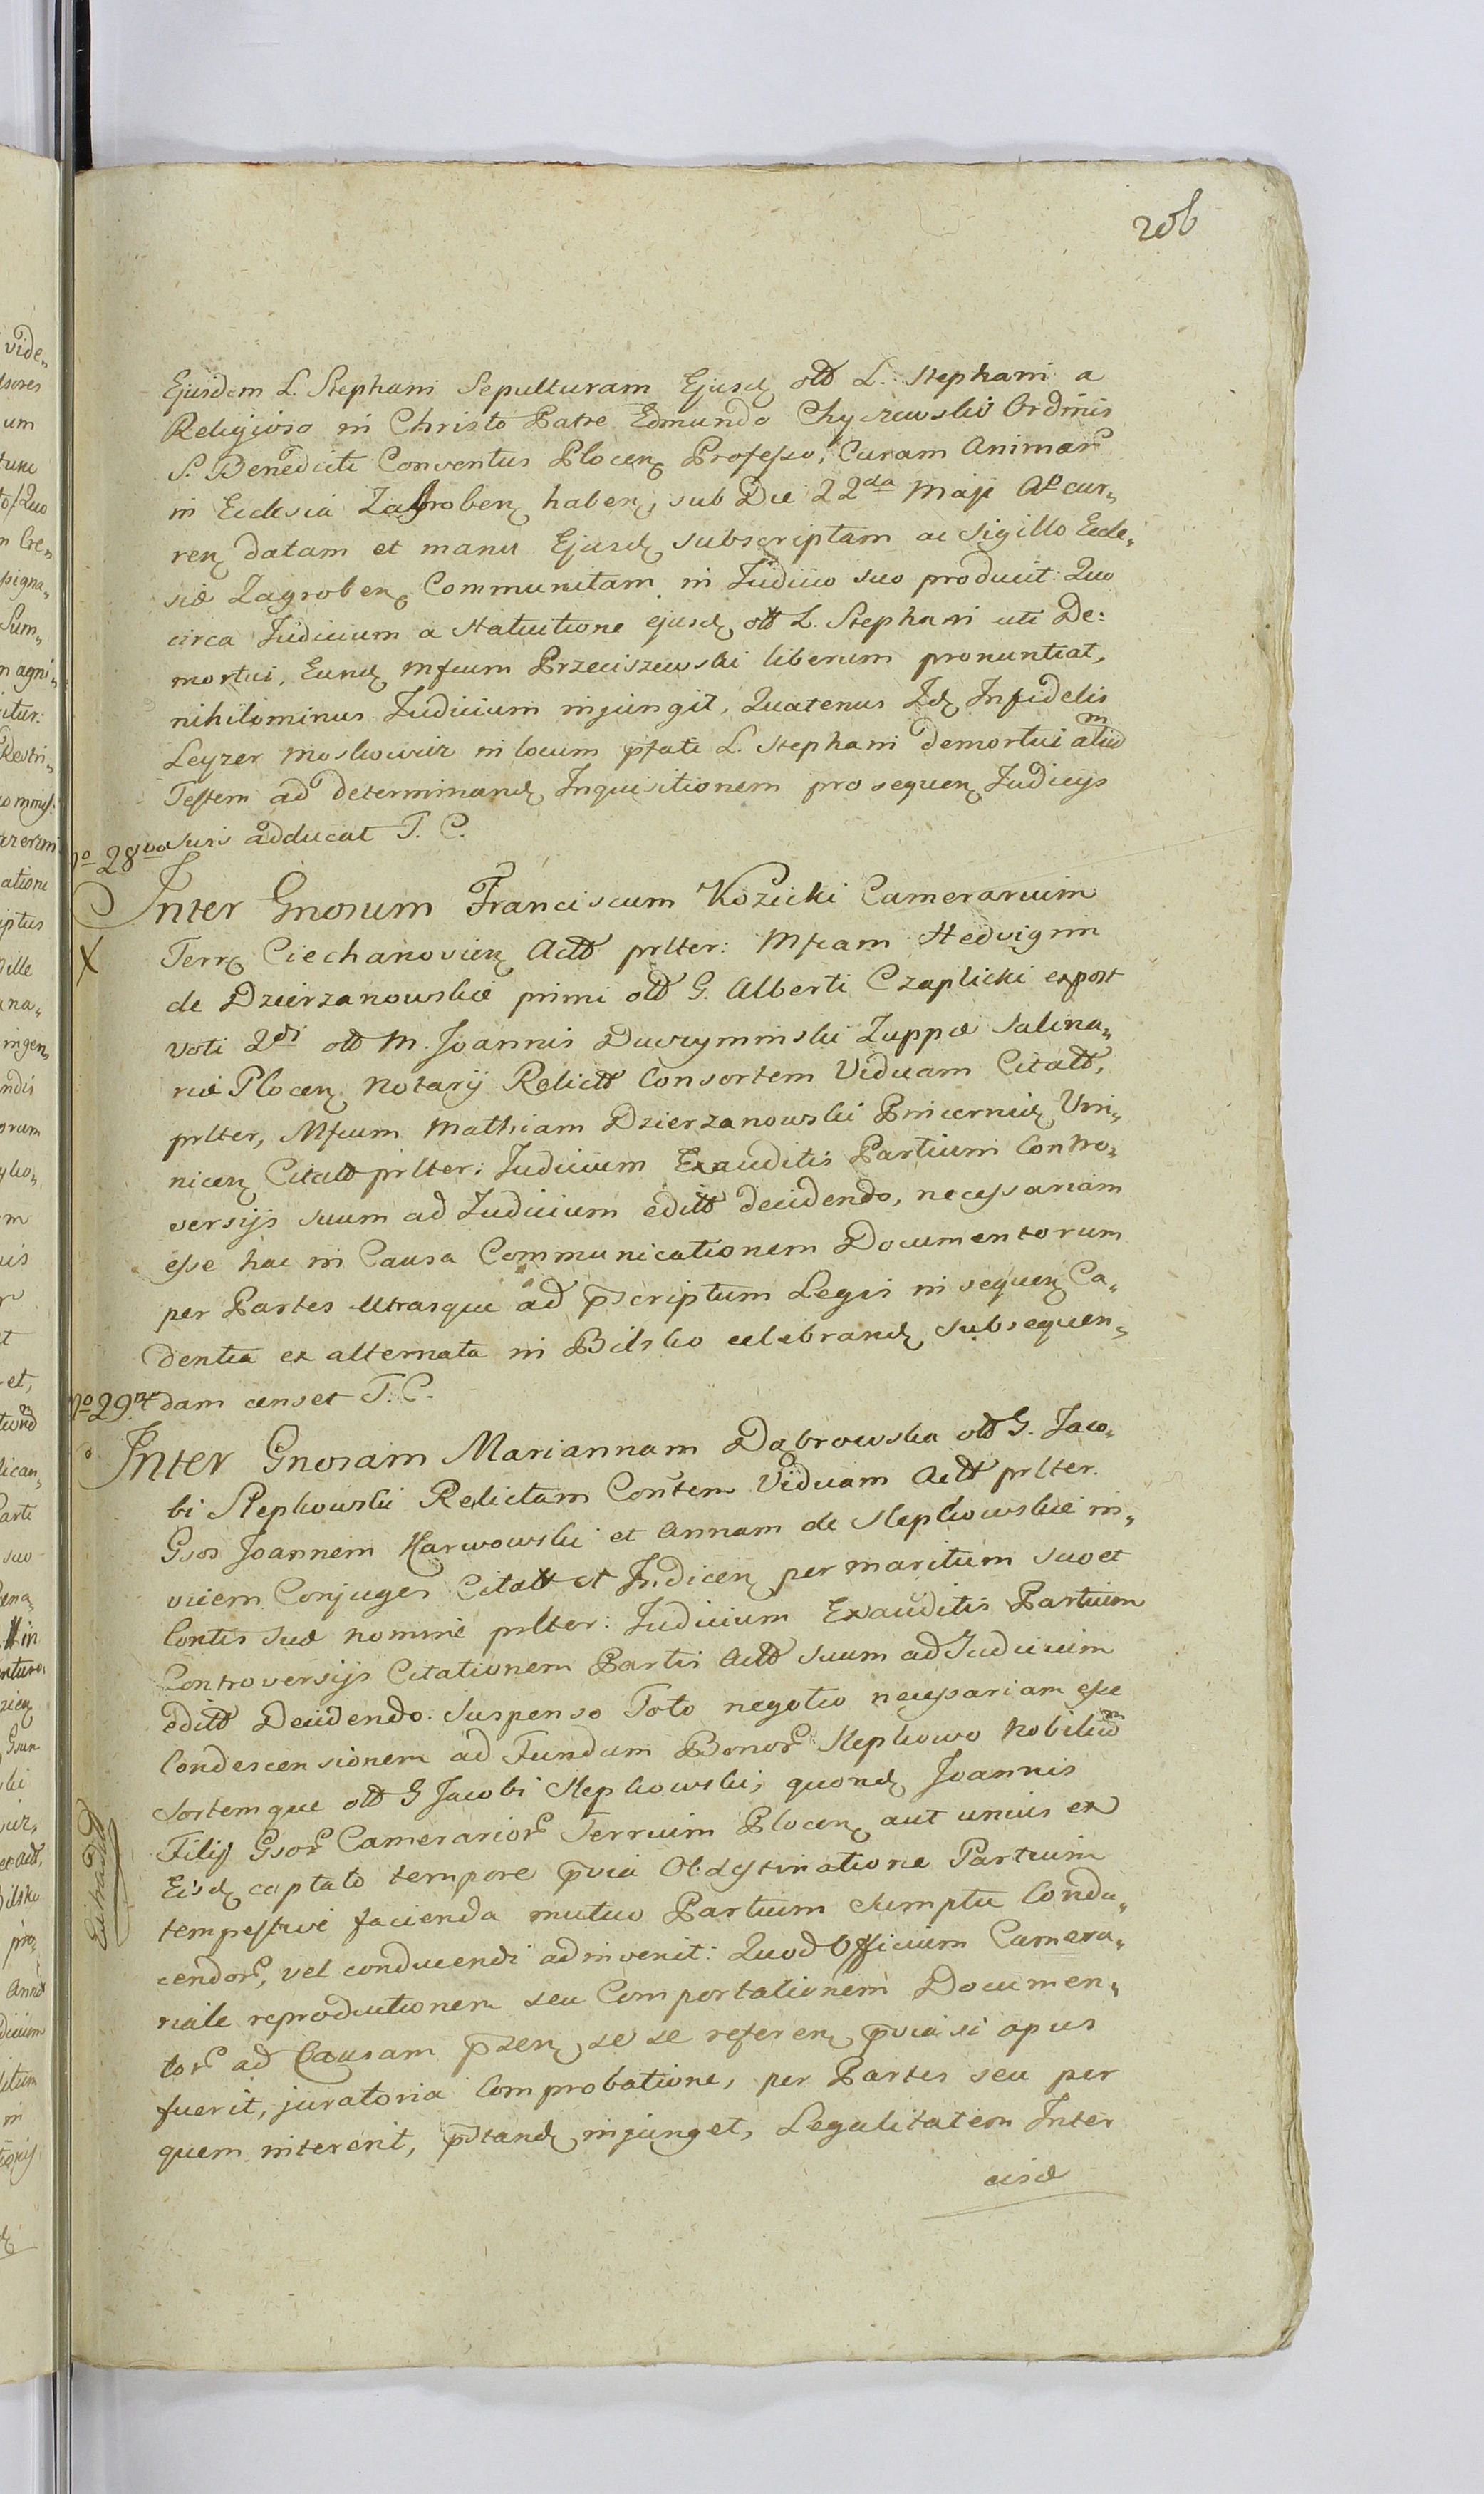 206
Ejusdem L. Stephani Sepulturam Ejusd olt L. Stephani a
Religioso in Christo Patre Edmundo Chyczewski Ordinis
S. Benedicti Conventus Plocen Professo, Curam Animar
in Ecclesia Zagroben haben, sub Die 22da Maji Ao cur„
ren datam et manu Ejusd subscriptam ac Sigillo Eccle„
siæ Zagroben Communitam in Judicio suo producit: Quo
circa Judicium a Statutione ejusd olt L. Stephani uti De:
mortui, Eund Mfcum Przeciszewski liberum pronuntiat,
nihilominus Judicium injungit, Quatenus Id Infidelis
Leyzer Moskowicz in locum pfati L. Stephani demortui alium
Testem ad determinand Inquisitionem pro sequen Judicijs
suis adducat T. C.
No 28va
Inter Gnosum Franciscum Kozicki Camerarium
Terr Ciechanovien Actt prlter: Mfcam Hedvigim
de Dzierzanowskie primi olt G. Alberti Czaplicki expost
voti 2di olt M. Joannis Duczyminski Zuppæ Salina„
riæ Plocen Notarij Relictt Consortem Viduam Citatt,
prlter, Mfcum Mathiam Dzierzanowski Pincernid Vni„
nicen Citatt prlter: Judicium Exauditis Partium Contro„
versijs suum ad Judicium editt decidendo, necessariam
esse hac in Causa Communicationem Documentorum
per Partes Utrasque ad pscriptum Legis in sequen Ca„
dentia ex alternata in Bilsko celebrand subsequen„
dam censet T. C.
No 29na
Inter Gnosam Mariannam Dąbrowska olt G. Jaco„
bi Stepkowski Relictam Contem Viduam Actt prlter.
Gsos Joannem Karwowski et Annam de Stepkowskie in„
vicem Conjuges Citatt et Indicen per maritum suo et
Contis suæ nomine prlter: Judicium Exauditis Partium
Controversijs Citationem Partis Actt suum ad Judicium
editt Decidendo. Suspenso Toto negotio necessariam esse
Condescensionem ad Fundum Bonor Stepkowo Nobilium
Sortemque olt G Jacobi Stepkowski, quond Joannis
Filij Gsor Camerarior Terrium Plocen aut unius ex
Eisd captato tempore pvia Obdestinatione Partium
tempestive facienda mutuo Partium Sumptu Condu„
cendor, vel conducendi adinvenit: Quod Officium Camera„
riale reproductionem seu Comportationem Documen„
tor ad Causam psen se se referen pvia si opus
fuerit, juratoria Comprobatione, per Partes seu per
quem intererit, pstand injunget, Legalitatem Inter
eisd